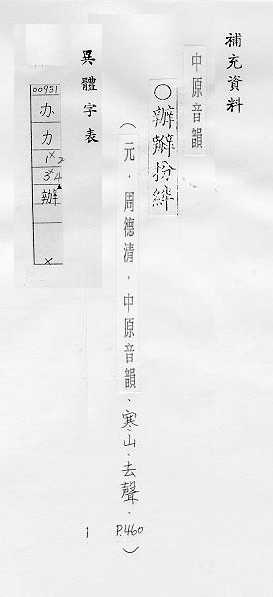 補充資料
中原音韻
〇辦瓣扮絆
(元．周德清．中原音韻、寒山．去聲．P.460)
異體字表
00951
办
力
1×2
3×4
辦
×
1